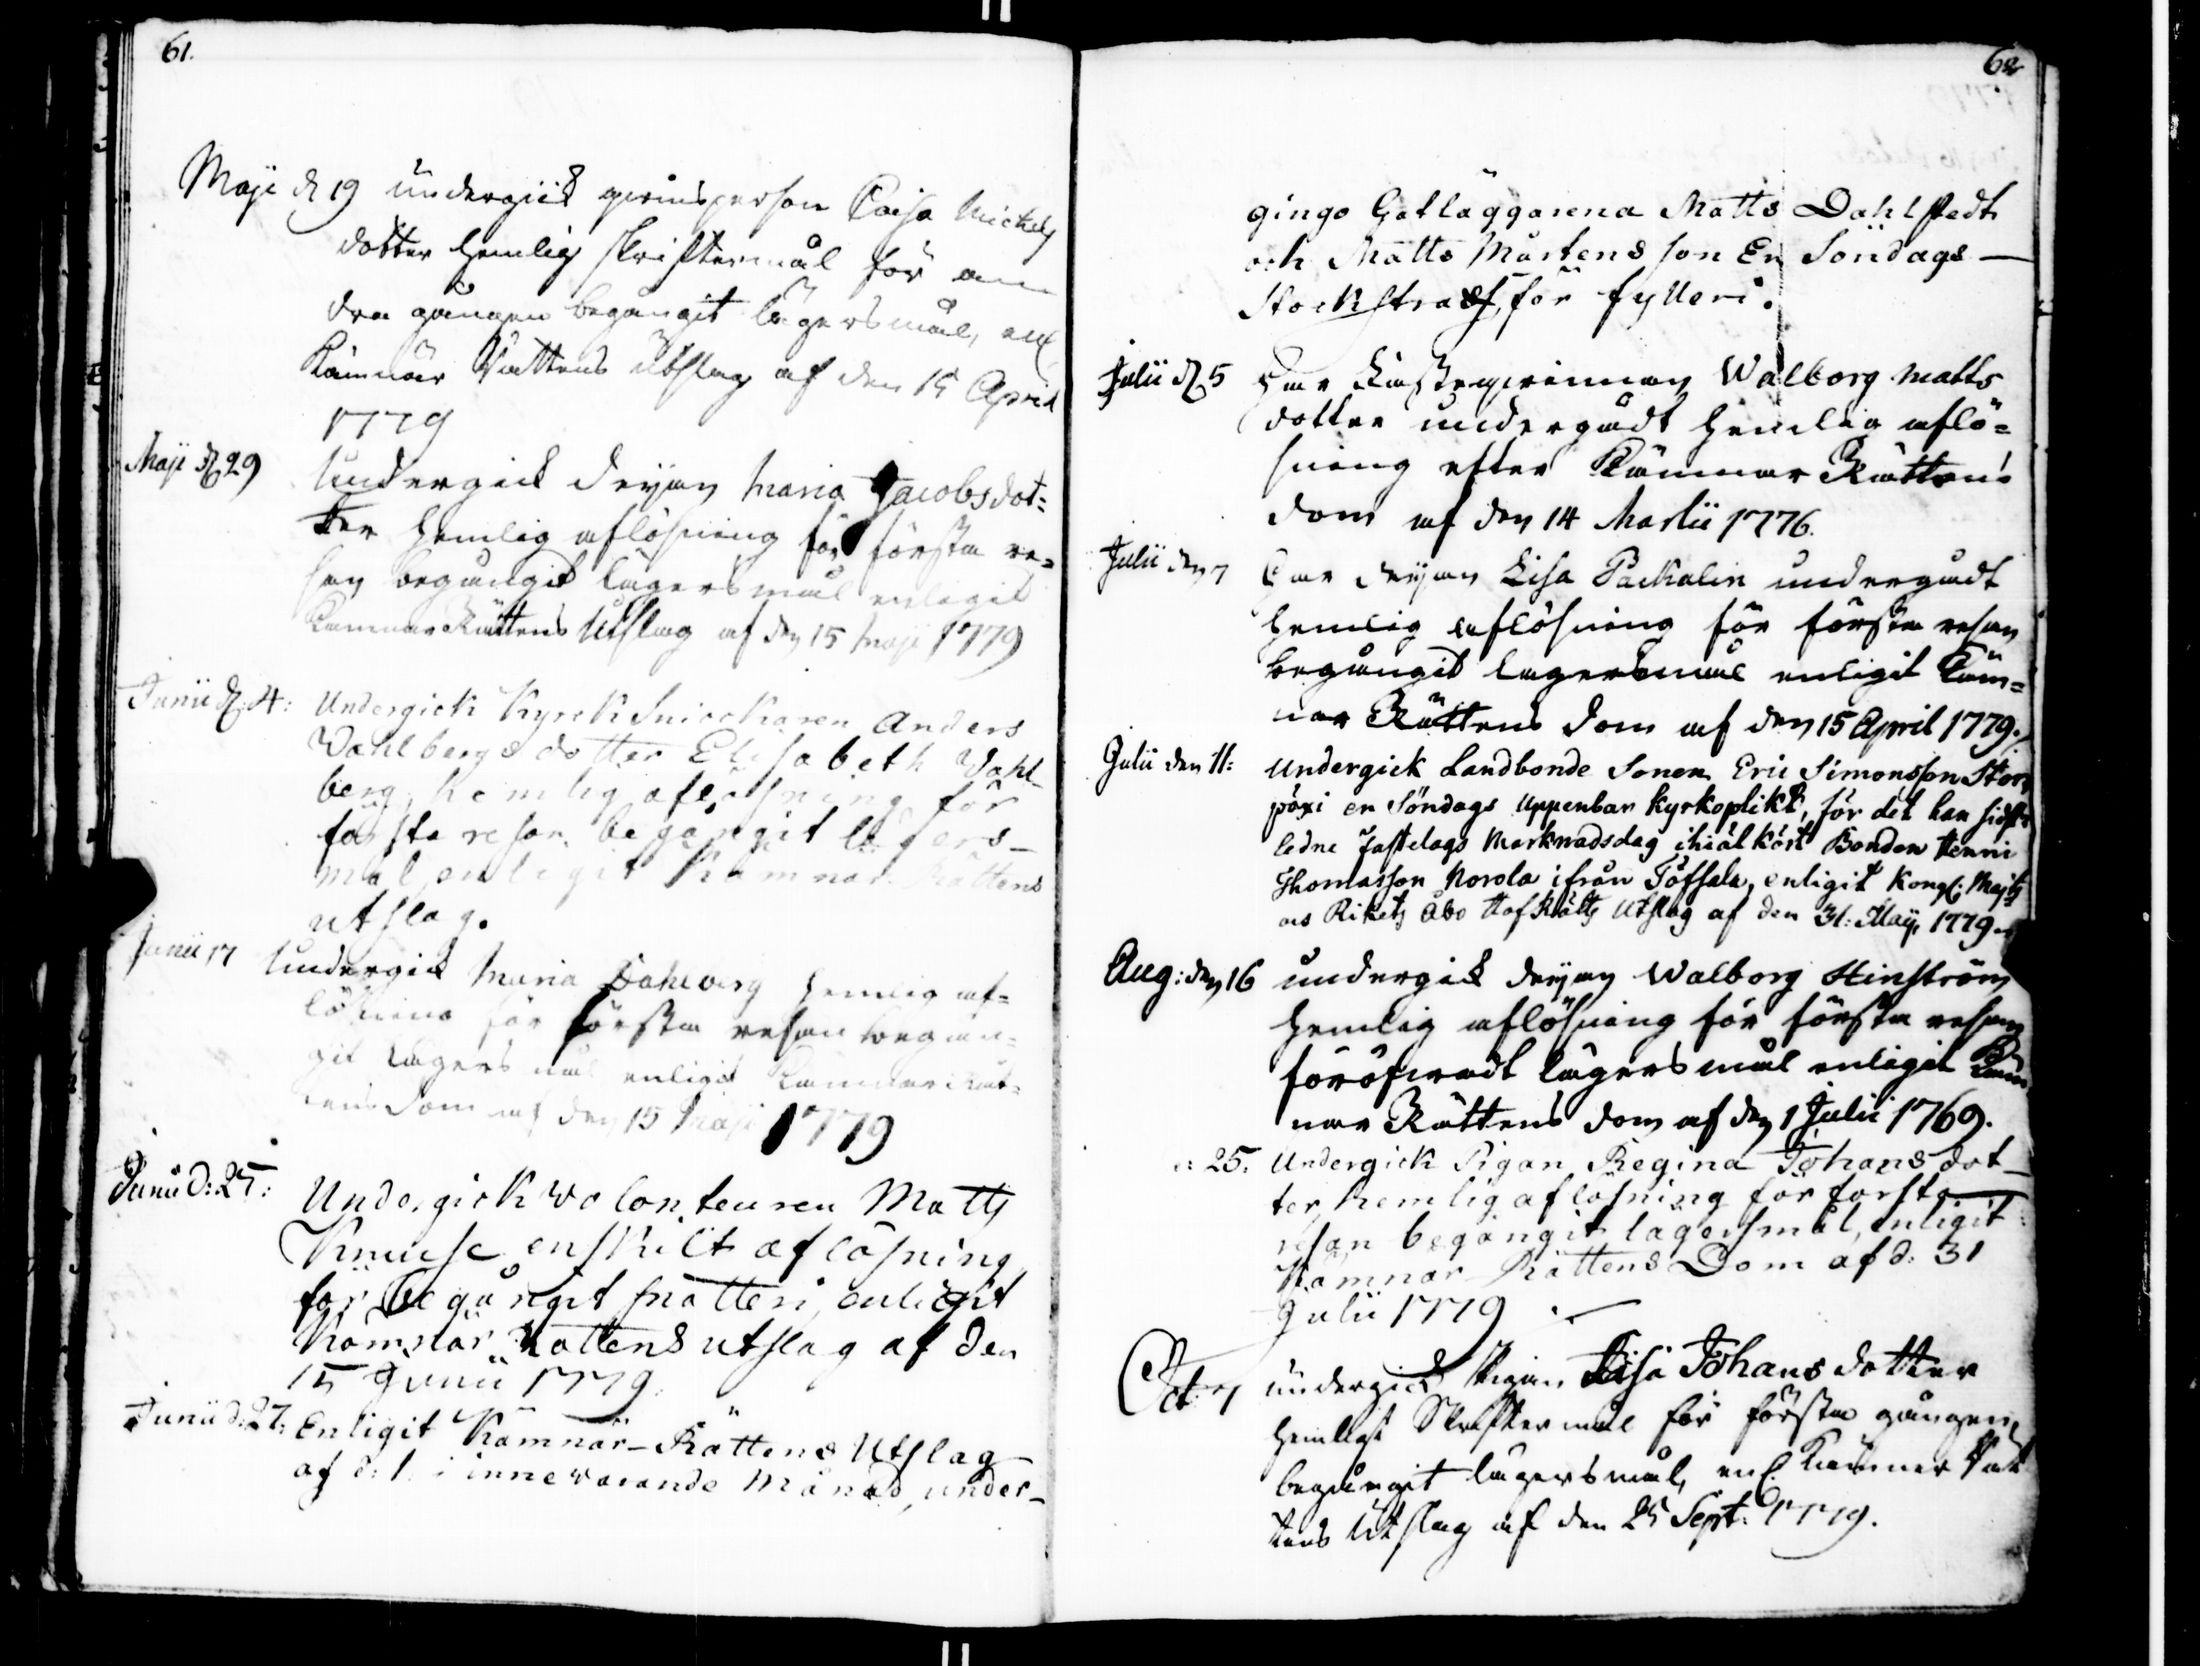 61.
Maji d. 19 undergick qvinsperson Caisa Michels
dotter hemlig skriftermål för an
dra gången begångit lägersmål, enl.
Kämnärs Rättens utslag af den 15 April
1779
Maji d. 29 Undergick Pigan Maria Jacobsdot=
ter hemlig aflösning för första re=
san begångit lägersmål enligit
Kämnärs Rättens Utslag af den 15 Maji 1779
Junii d. 4: Undergick Kyrck Snickaren Anders
Wahlbergs dotter Elisabeth Wahl
berg, hemlig aflösning för
första resan begångit lägers_
mål, enligit Kämnärs Rättens
utslag.
Junii 17 Undergick Maria Dahlberg hemlig af=
lösning för första resan begån=
git lägers mål enligit Kämnärs Rät=
tens dom af den 15 Maji 1779
Junii d: 25: Undergick volonteuren Matts
enskilt aflösning
för begångit snatteri, enligit
Kämnärs Rättens utslag af den
15 Junii 1779.
Junii d: 27: Enligit Kämnärs-Rättens Utslag
af d: 1. i innevarande Månad, under_
62
gingo Gatläggarena Matts Dahlstedt
och Matts Mårtens son En Söndags
Stockstraff, för fylleri.
Julii d. 5 Har Walborg Matts
dotter undergådt hemlig aflö=
sning efter Kämnärs Rättens
dom af den 14 Martii 1776.
Julii den 7 Har Pigan Lisa Packalin undergådt
hemlig aflösning för första resan
begångit lägersmål enligit Käm=
närs Rättens dom af den 15 April 1779.
Julii den 11: Undergick Landbonde Sonen Eric Simonsson
en Söndags Uppenbar kyrkoplikt, för det han sidst
ledne Fastelags Marknadsdag ihiälkört Bonden Henric
Thomasson Norola ifrån Töfsala, enligit Kongl: Majts
os Rikets Åbo HofRätts Utslag af den 31: Maij, 1779.
Aug: den 16 undergick Pigan Walborg Stinström
hemlig aflösning för första resan
föröfwadt lägersmål enligit Käm
närs Rättens dom af den 1 Julii 1769.
: 25. Undergick Pigan Regina Johans dot_
ter hemlig aflösning för första
resan begångit lägersmål, enligit
Kämnärs Rättens Dom af d: 31
Julii 1779
Oct: 7 undergick Pigan Lisa Johans dotter
hemligt Skriftermål för första gången
begångit lägersmål, enl. Kämners Rät
tens Utslag af den 25 Sept: 1779.